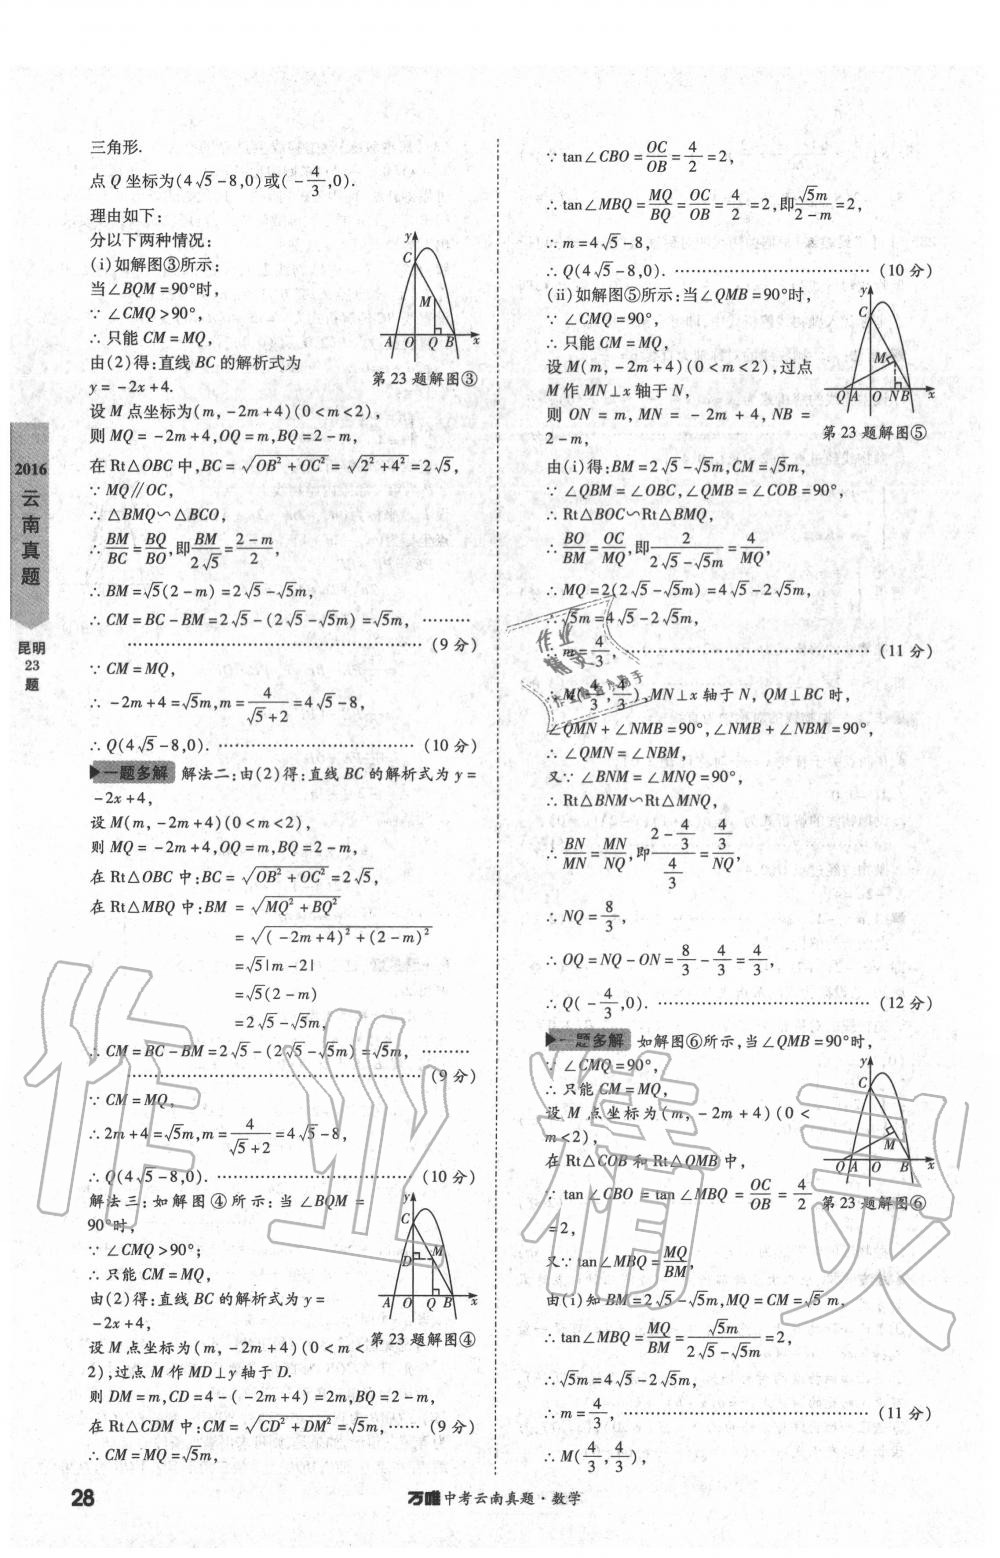 三角形.
点 Q 坐标为(4√5-8,0)或(-4/3,0).
理由如下:
分以下两种情况:
(i)如解图③所示:
当∠BQM=90°时,
∵∠CMQ>90°,
∴只能 CM=MQ,
由(2)得:直线 BC 的解析式为
y=-2x+4.
y
C
M
A O Q B x
第 23 题解图③
设 M 点坐标为(m,-2m+4)(0<m<2),
则 MQ=-2m+4,OQ=m,BQ=2-m,
在 Rt△OBC 中,BC=√(OB²+OC²)=√(2²+4²)=2√5,
∵MQ∥OC,
∴△BMQ∽△BCO,
∴BM/BC=BQ/BO,即BM/2√5=(2-m)/2,
∴BM=√5(2-m)=2√5-√5m,
∴CM=BC-BM=2√5-(2√5-√5m)=√5m, ………
……………………………… (9 分)
∵CM=MQ,
∴-2m+4=√5m,m=4/(√5+2)=4√5-8,
∴Q(4√5-8,0). ……………………………… (10 分)
一题多解 解法二:由(2)得:直线 BC 的解析式为 y=
-2x+4,
设 M(m,-2m+4)(0<m<2),
则 MQ=-2m+4,OQ=m,BQ=2-m,
在 Rt△OBC 中:BC=√(OB²+OC²)=2√5,
在 Rt△MBQ 中:BM =√(MQ²+BQ²)
=√((-2m+4)²+(2-m)²)
=√5|m-2|
=√5(2-m)
=2√5-√5m,
∴CM=BC-BM=2√5-(2√5-√5m)=√5m, ………
……………………………… (9 分)
∵CM=MQ,
∴2m+4=√5m,m=4/(√5+2)=4√5-8,
∴Q(4√5-8,0). ……………………………… (10 分)
解法三:如解图④所示:当∠BQM=
90°时,
∵∠CMQ>90°;
∴只能 CM=MQ,
由(2)得:直线 BC 的解析式为 y=
-2x+4,
设 M 点坐标为(m,-2m+4)(0<m<
2),过点 M 作 MD⊥y 轴于 D.
y
C
D M
A O Q B x
第 23 题解图④
则 DM=m,CD=4-(-2m+4)=2m,BQ=2-m,
在 Rt△CDM 中:CM=√(CD²+DM²)=√5m, …… (9 分)
∴CM=MQ=√5m,
∵tan∠CBO=OC/OB=4/2=2,
∴tan∠MBQ=MQ/BQ=OC/OB=4/2=2,即√5m/(2-m)=2,
∴m=4√5-8,
∴Q(4√5-8,0). ……………………………… (10 分)
(ii)如解图⑤所示:当∠QMB=90°时,
∵∠CMQ=90°,
∴只能 CM=MQ,
设 M(m,-2m+4)(0<m<2),过点
M 作 MN⊥x 轴于 N,
则 ON=m,MN=-2m+4,NB=
2-m,
y
C
M
Q A O N B x
第 23 题解图⑤
由(i)得:BM=2√5-√5m,CM=√5m,
∵∠QBM=∠OBC,∠QMB=∠COB=90°,
∴Rt△BOC∽Rt△BMQ,
∴BO/BM=OC/MQ,即2/(2√5-√5m)=4/MQ,
∴MQ=2(2√5-√5m)=4√5-2√5m,
∴√5m=4√5-2√5m,
∴m=4/3, ……………………………… (11 分)
∴M(4/3,4/3),MN⊥x 轴于 N,QM⊥BC 时,
∠QMN+∠NMB=90°,∠NMB+∠NBM=90°,
∴∠QMN=∠NBM,
又∵∠BNM=∠MNQ=90°,
∴Rt△BNM∽Rt△MNQ,
∴BN/MN=MN/NQ,即(2-4/3)/(4/3)=(4/3)/NQ,
∴NQ=8/3,
∴OQ=NQ-ON=8/3-4/3=4/3,
∴Q(-4/3,0). ……………………………… (12 分)
一题多解 如解图⑥所示,当∠QMB=90°时,
∵∠CMQ=90°,
∴只能 CM=MQ,
设 M 点坐标为(m,-2m+4)(0<
m<2),
在 Rt△COB 和 Rt△QMB 中,
∵tan∠CBO=tan∠MBQ=OC/OB=4/2
=2,
y
C
M
Q A O B x
第 23 题解图⑥
又∵tan∠MBQ=MQ/BM,
由(i)知 BM=2√5-√5m,MQ=CM=√5m,
∴tan∠MBQ=MQ/BM=√5m/(2√5-√5m)=2,
∴√5m=4√5-2√5m,
∴m=4/3, ……………………………… (11 分)
∴M(4/3,4/3),
2016
云南真题
昆明
23
题
28
万唯中考云南真题·数学
作业精灵
作业
精灵